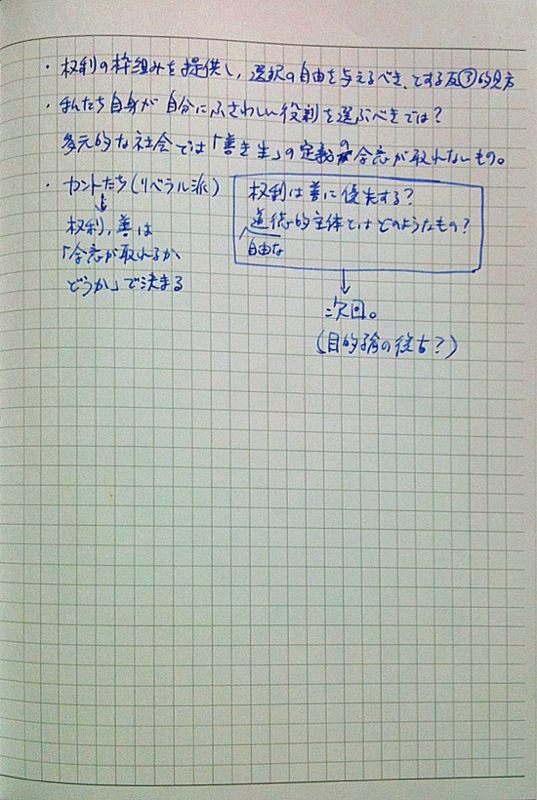 ・権利の枠組みを提供し、選択の自由を与えるべき、とする反③的見方
・私たち自身が自分にふさわしい役割を選ぶべきでは?
多元的な社会では「善き生」の定義の合意が取れないもの。
・カントたち(リベラル派)
↓
権利、善は
「合意が取れるか
どうか」で決まる
権利は善に優先する?
道徳的主体とはどのようなもの?
自由な
↓
次回。
(目的論の復古?)